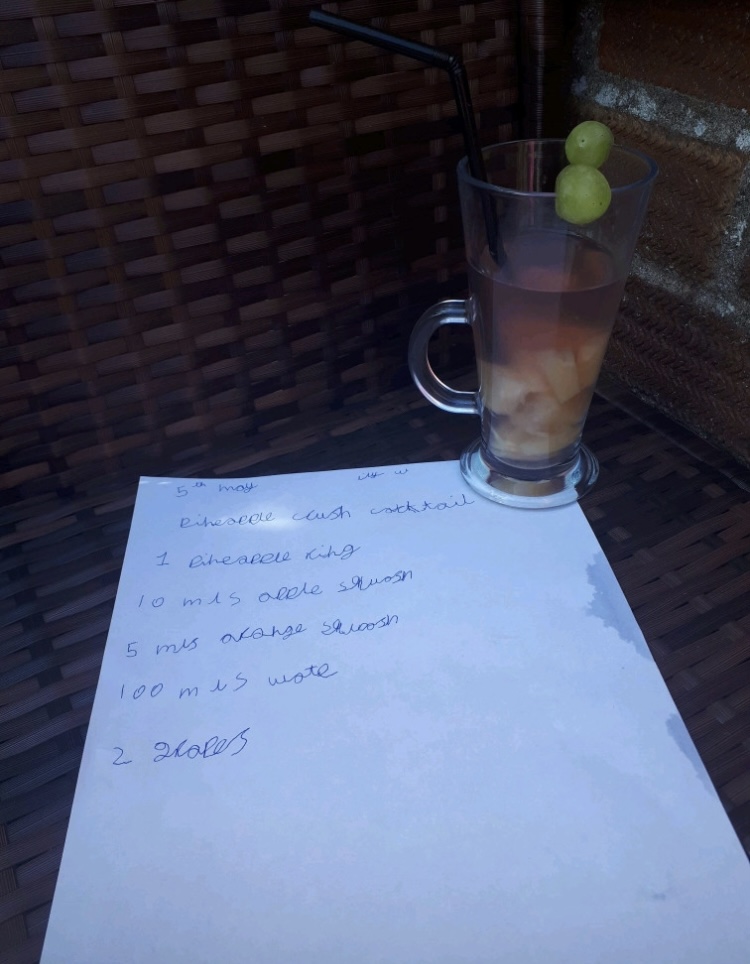 5th may
Pineapple crush cocktail
1 Pineapple ring
10 mls apple squash
5 mls orange squash
100 mls wate
2 grapes